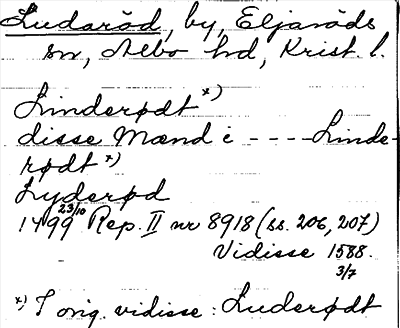 Ludaröd, by, Eljaröds
sn, Albo hd, Krist. l.
Linderødt *)
disse Mænd i ---- Linde-
rødt *)
Lyderød
1499 23/10 Rep. II nr 8918 (ss. 206, 207)
Vidisse 1588.
3/7
*) I orig. vidisse: Luderødt